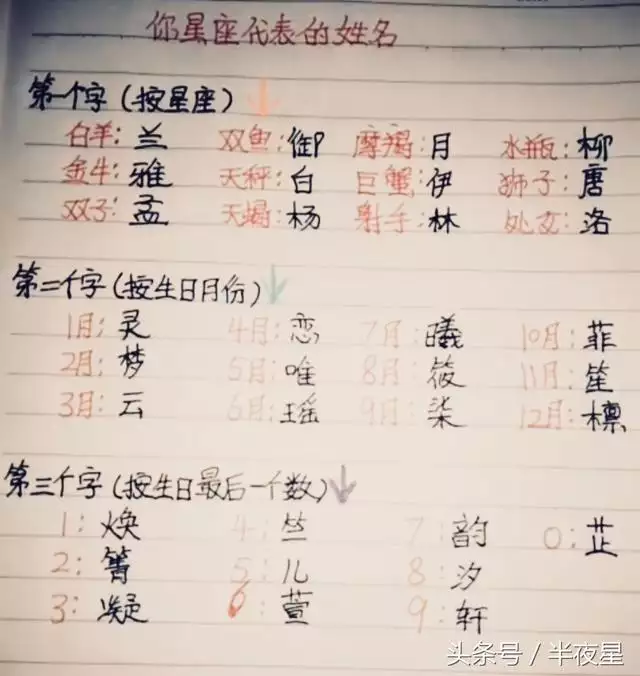 你星座代表的姓名
第一个字(按星座)↓
白羊:兰 双鱼:御 摩羯:月 水瓶:柳
金牛:雅 天秤:白 巨蟹:伊 狮子:唐
双子:孟 天蝎:杨 射手:林 处女:洛
第二个字(按生日月份)↓
1月:灵 4月:恋 7月:曦 10月:菲
2月:梦 5月:唯 8月:筱 11月:笙
3月:云 6月:瑶 9月:柒 12月:檩
第三个字(按生日最后一个数)↓
1:焕 4:丝 7:韵 0:芷
2:箐 5:儿 8:汐
3:凝 6:萱 9:轩
头条号/半夜星